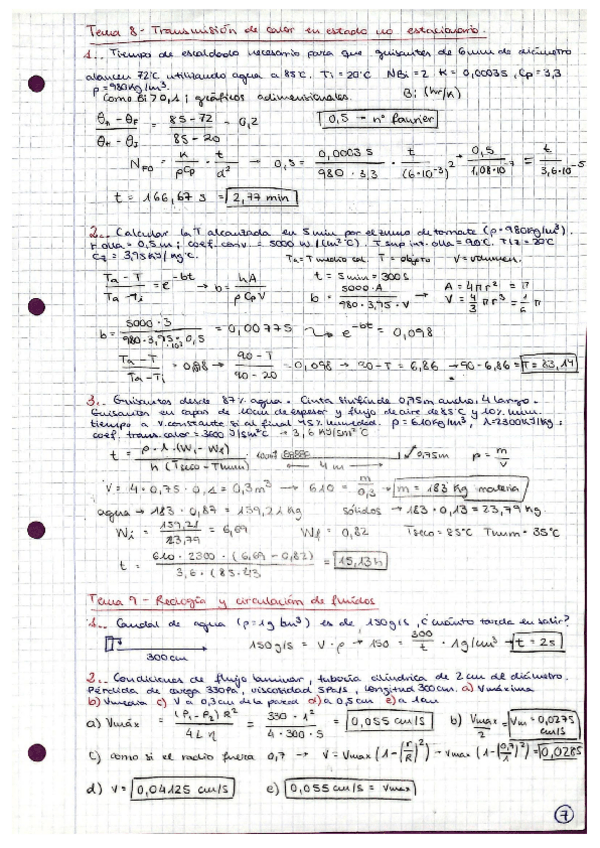 Tema 8 - Transmisión de calor en estado no estacionario.
1.. Tiempo de escaldado necesario para que guisantes de 6mm de diámetro
alcancen 72°C utilizando agua a 85°C. Ti = 20°C NBi = 2 K = 0,00035, Cp = 3,3
ρ = 980kg/m³.
Como Bi > 0,1; gráficos adimensionales. Bi (hr/K)
θn - θF / θn - θi = 85 - 72 / 85 - 20 = 0,2 0,5 → nº fourier
NFO = K / ρCp · t / d² → 0,5 = 0,00035 / 980 · 3,3 · t / (6·10⁻³)² → 0,5 / 1,08·10⁻⁷ = t / 3,6·10⁻⁵
t = 166,67 s = 2,77 min
2.. Calcular la T alcanzada en 5 min por el zumo de tomate (ρ = 980kg/m³).
r olla = 0,5 m; coef. conv. = 5000 W/(m²°C). T sup int. olla = 90°C. Ti = 20°C
= 3,95 KJ/kg°C. Ta = T medio cal. T = objeto V = volumen.
Ta - T / Ta - Ti = e^-bt → b = hA / ρ Cp V t = 5min = 300s
b = 5000·A / 980·3,95·V → A = 4πr² = π
V = 4/3 πr³ = 1/6 π
b = 5000·3 / 980·3,95·10³·0,5 = 0,00775 → e^-bt = 0,098
Ta - T / Ta - Ti = 0,98 → 90 - T / 90 - 20 = 0,098 → 90 - T = 6,86 → 90 - 6,86 = T = 83,14
3.. Guisantes desde 87% agua. Cinta sinfin de 0,75m ancho, 4 largo.
Guisantes en capas de 10cm de espesor y flujo de aire de 85°C y 10% hum.
tiempo a v. constante si al final 45% humedad. ρ = 610kg/m³, λ = 2300KJ/kg
coef. trans. calor = 3600 J/sm²°C → 3,6 KJ/sm²°C
t = ρ·λ·(Wi - Wf) / h (Tseco - Thum) 4 m 0,75m ρ = m / v
V = 4·0,75·0,1 = 0,3m³ → 610 = m / 0,3 → m = 183 Kg materia
agua → 183·0,87 = 159,21 Kg sólidos → 183·0,13 = 23,79 Kg.
Wi = 159,21 / 23,79 = 6,69 Wf = 0,82 Tseco = 85°C Thum = 35°C
t = 610·2300·(6,69 - 0,82) / 3,6·(85- = 15,13h
Tema 9 - Reología y circulación de fluidos
1.. Caudal de agua (ρ = 1g/cm³) es de 150g/s, ¿cuánto tarda en salir?
300cm 150g/s = V·ρ → 150 = 300 / t · 1g/cm³ → t = 2s
2.. Condiciones de flujo laminar, tubería cilíndrica de 2cm de diámetro.
Pérdida de carga 330Pa, viscosidad 5Pa/s, longitud 300cm. a) Vmáxima
b) Vmedia c) V a 0,3cm de la pared d) a 0,5cm e) a 1cm
a) Vmáx = (P1 - P2) R² / 4 L η = 330·1² / 4·300·5 = 0,055 cm/s b) Vmax / 2 = Vm = 0,0275 cm/s
c) como si el radio fuera 0,7 → V = Vmax (1-(r/R)²) → Vmax (1-(0,7/1)²) = 0,0285
d) V = 0,04125 cm/s e) 0,055 cm/s = Vmax
7